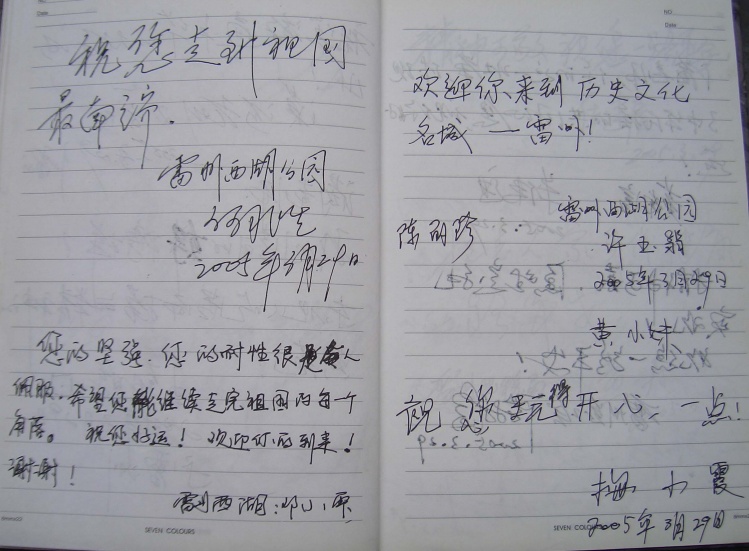 No.
Date
祝您走到祖国
最南端.
雷州西湖公园
2005年3月29日
您的坚强.您的耐性很是着人
佩服.希望您能继续走完祖国内每一个
角落。祝您好运!欢迎你的到来!
谢谢!
雷州西湖:邓小
SEVEN COLOURS
No.
Date
欢迎你来到历史文化
名城—雷州!
陈丽珍
雷州西湖公园
许玉
2005年3月29日
黄小妹
祝您玩得开心一点!
梅小霞
2005年3月29日
SEVEN COLOURS